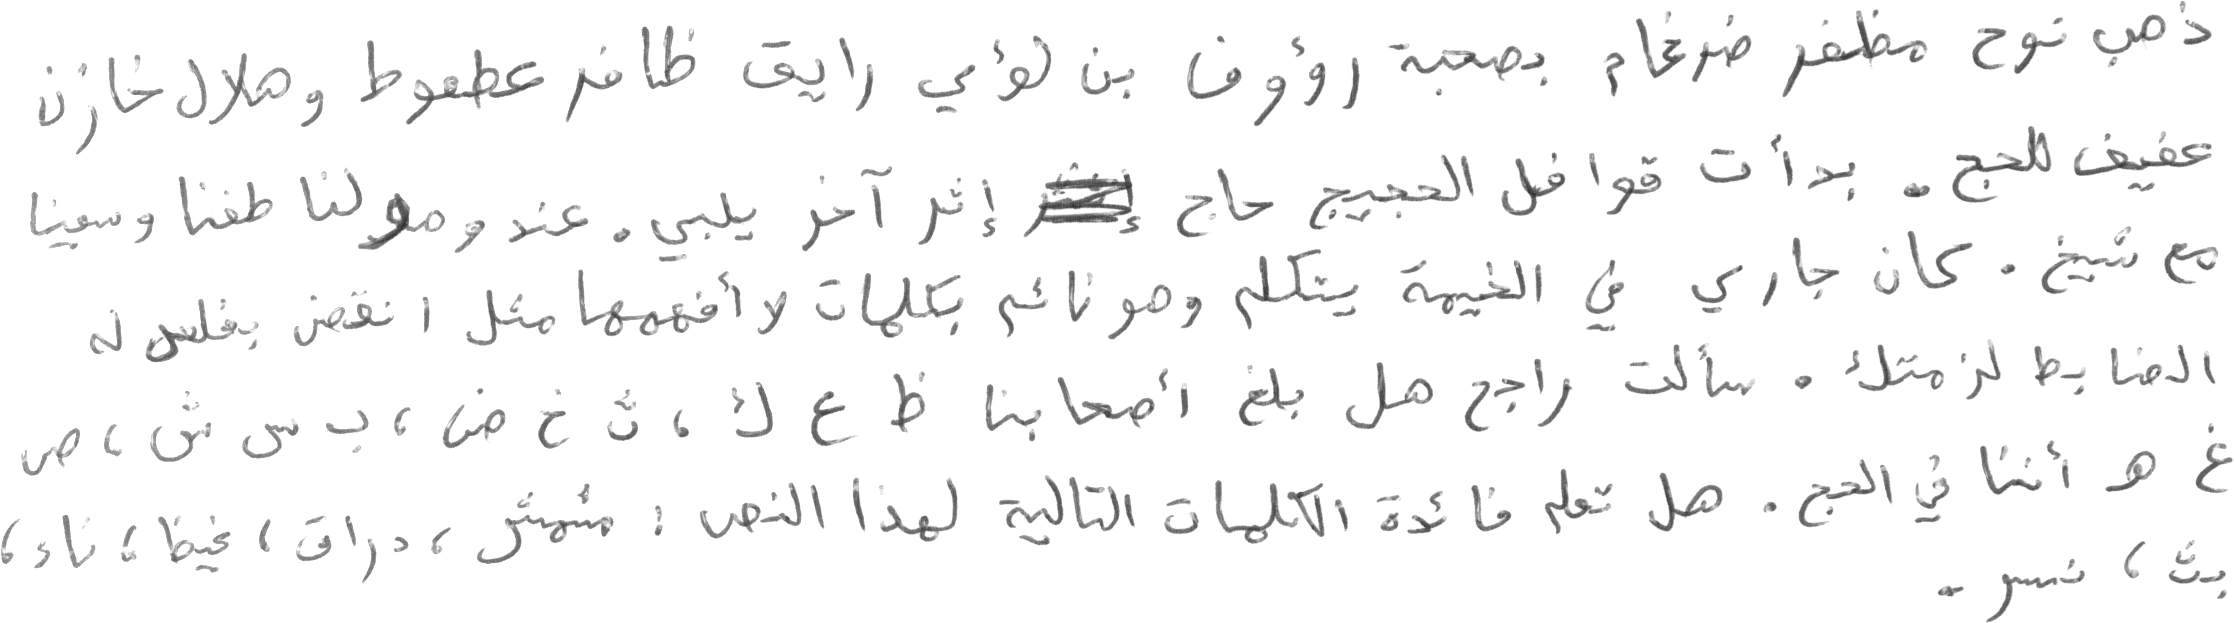 ذهب نوح مظفر ضرغام بصحبة رؤوف بن لؤي رايق ظافر عطعوط وهلال خازن
عفيف للحج . بدأت قوافل الحجيج حاج إثر آخر يلبي . عند وصولنا طفنا وسعينا
مع شيخ . كان جاري في الخيمة يتكلم وهو نائم بكلمات لا أفهمها مثل انقض بفلس له
الضابط لزمتك . سألت راجح هل بلغ أصحابنا ظ ع ك ، ث خ ض ، ب س ش ، ص
غ هـ أننا في الحج . هل تعلم فائدة الكلمات التالية لهذا النص : مشمش ، دراق ، غيظ ، ناء ،
بث ، نسر .